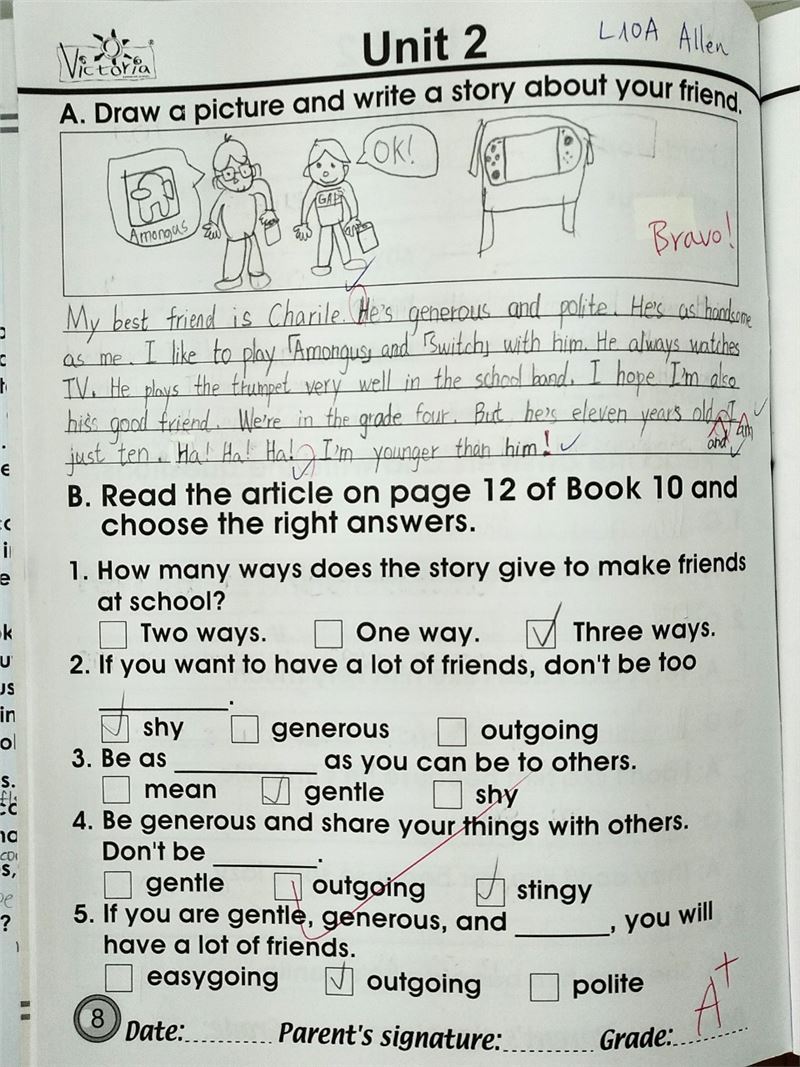 Victoria
Unit 2
L10A Allen
A. Draw a picture and write a story about your friend.
Amongus
GAP
OK!
Bravo!
My best friend is Charile. He's generous and polite. He's as handsome
as me. I like to play「Amongus」and「Switch」with him. He always watches
TV. He plays the trumpet very well in the school band. I hope I'm also
his good friend. We're in the grade four. But he's eleven years old, I
and am
just ten. Ha! Ha! Ha! I'm younger than him!
B. Read the article on page 12 of Book 10 and
choose the right answers.
1. How many ways does the story give to make friends
at school?
Two ways. One way. Three ways.
2. If you want to have a lot of friends, don't be too
__________.
shy generous outgoing
3. Be as __________ as you can be to others.
mean gentle shy
4. Be generous and share your things with others.
Don't be _______.
gentle outgoing stingy
5. If you are gentle, generous, and ______, you will
have a lot of friends.
easygoing outgoing polite
8 Date:............ Parent's signature:............ Grade:............
A+